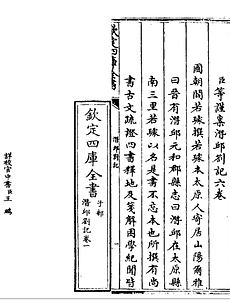 欽定四庫全書
潛邱劄記
臣等謹案潛邱劄記六卷
國朝閻若璩撰若璩本太原人寄居山陽爾雅
曰晉有潛邱元和郡縣志曰潛邱在太原縣
南三里若璩以名是書不忘本也所撰有尚
書古文疏證四書釋地及箋解困學紀聞皆
欽定四庫全書 子部
潛邱劄記卷一
詳校官中書臣王